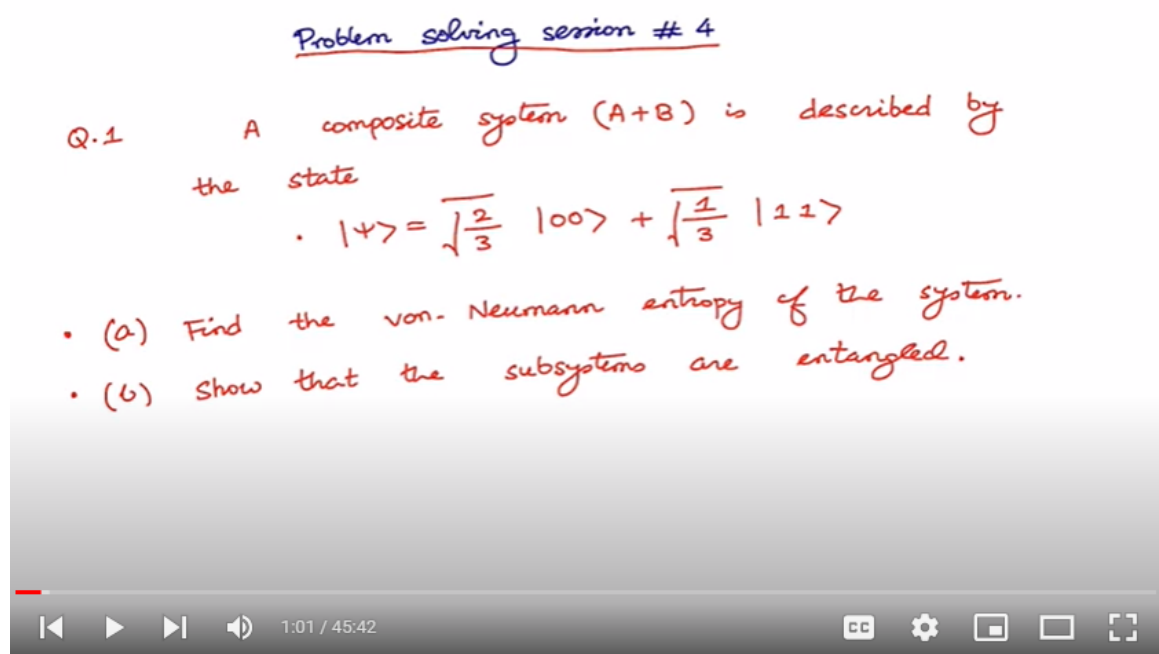 Problem solving session # 4
Q.1 A composite system (A+B) is described by
the state
. |ψ> = √2/3 |00> + √1/3 |11>
• (a) Find the von-Neumann entropy of the system.
• (b) Show that the subsystems are entangled.
1:01 / 45:42
CC